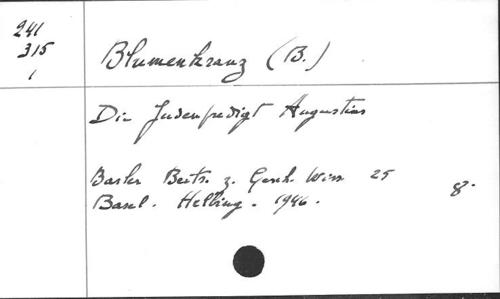 241
315
1
Blumenkranz (B.)
Die Judenpredigt Augustins
Basler Beitr. z. Gesch. Wiss. 25
8°
Basel. Helbing. 1946.